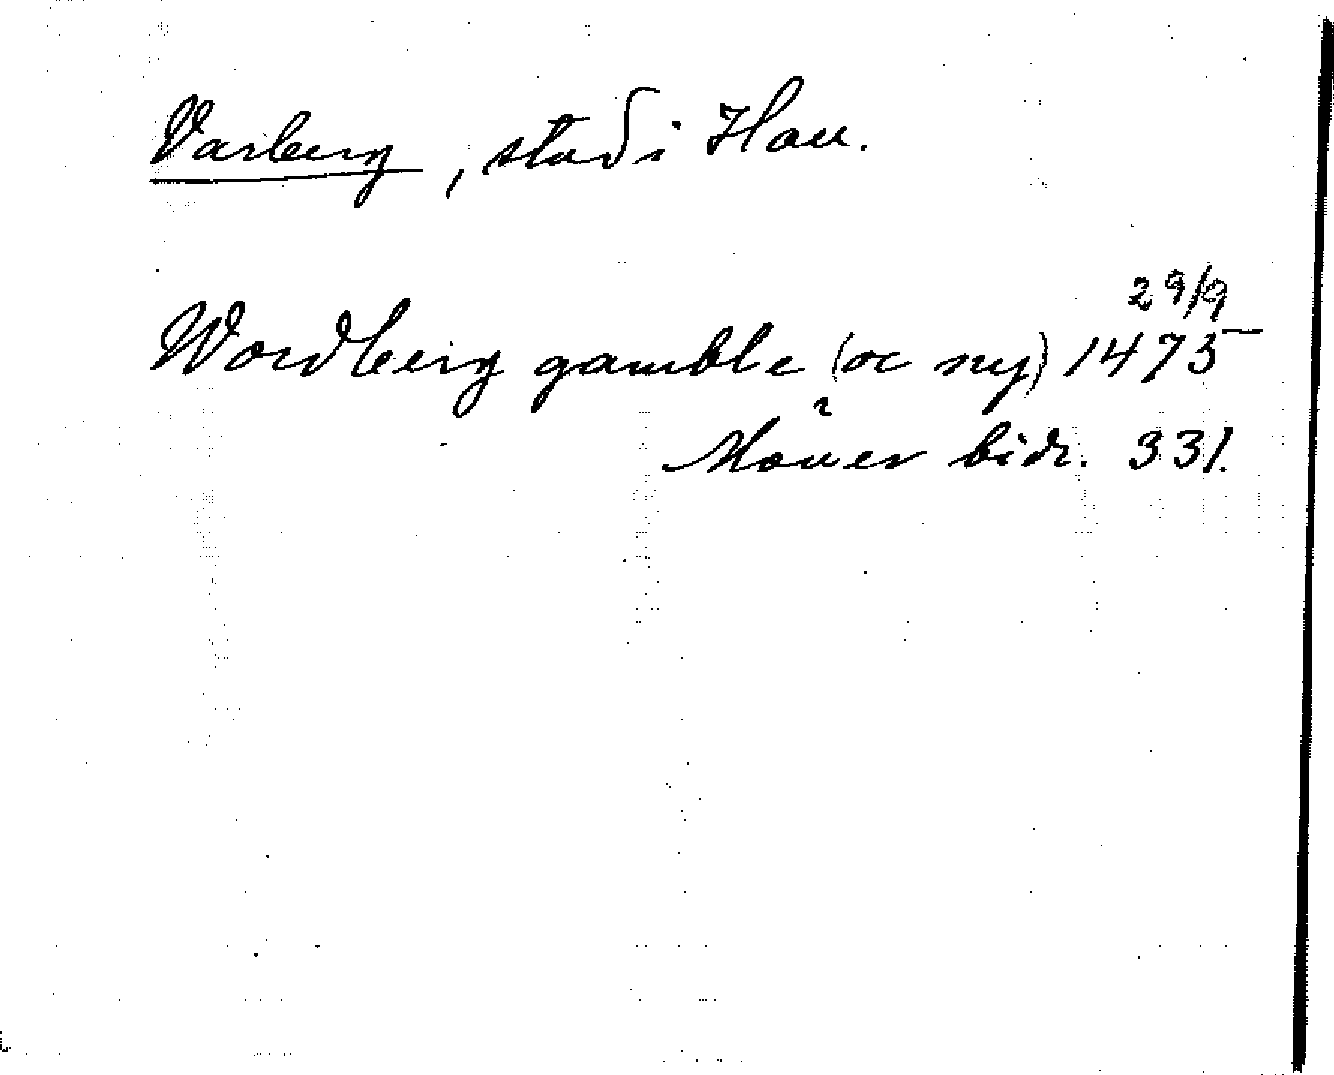 Varberg, stad i Hall.
29/9
Wordberg gamble (oc ny) 1475
bidr. 331.